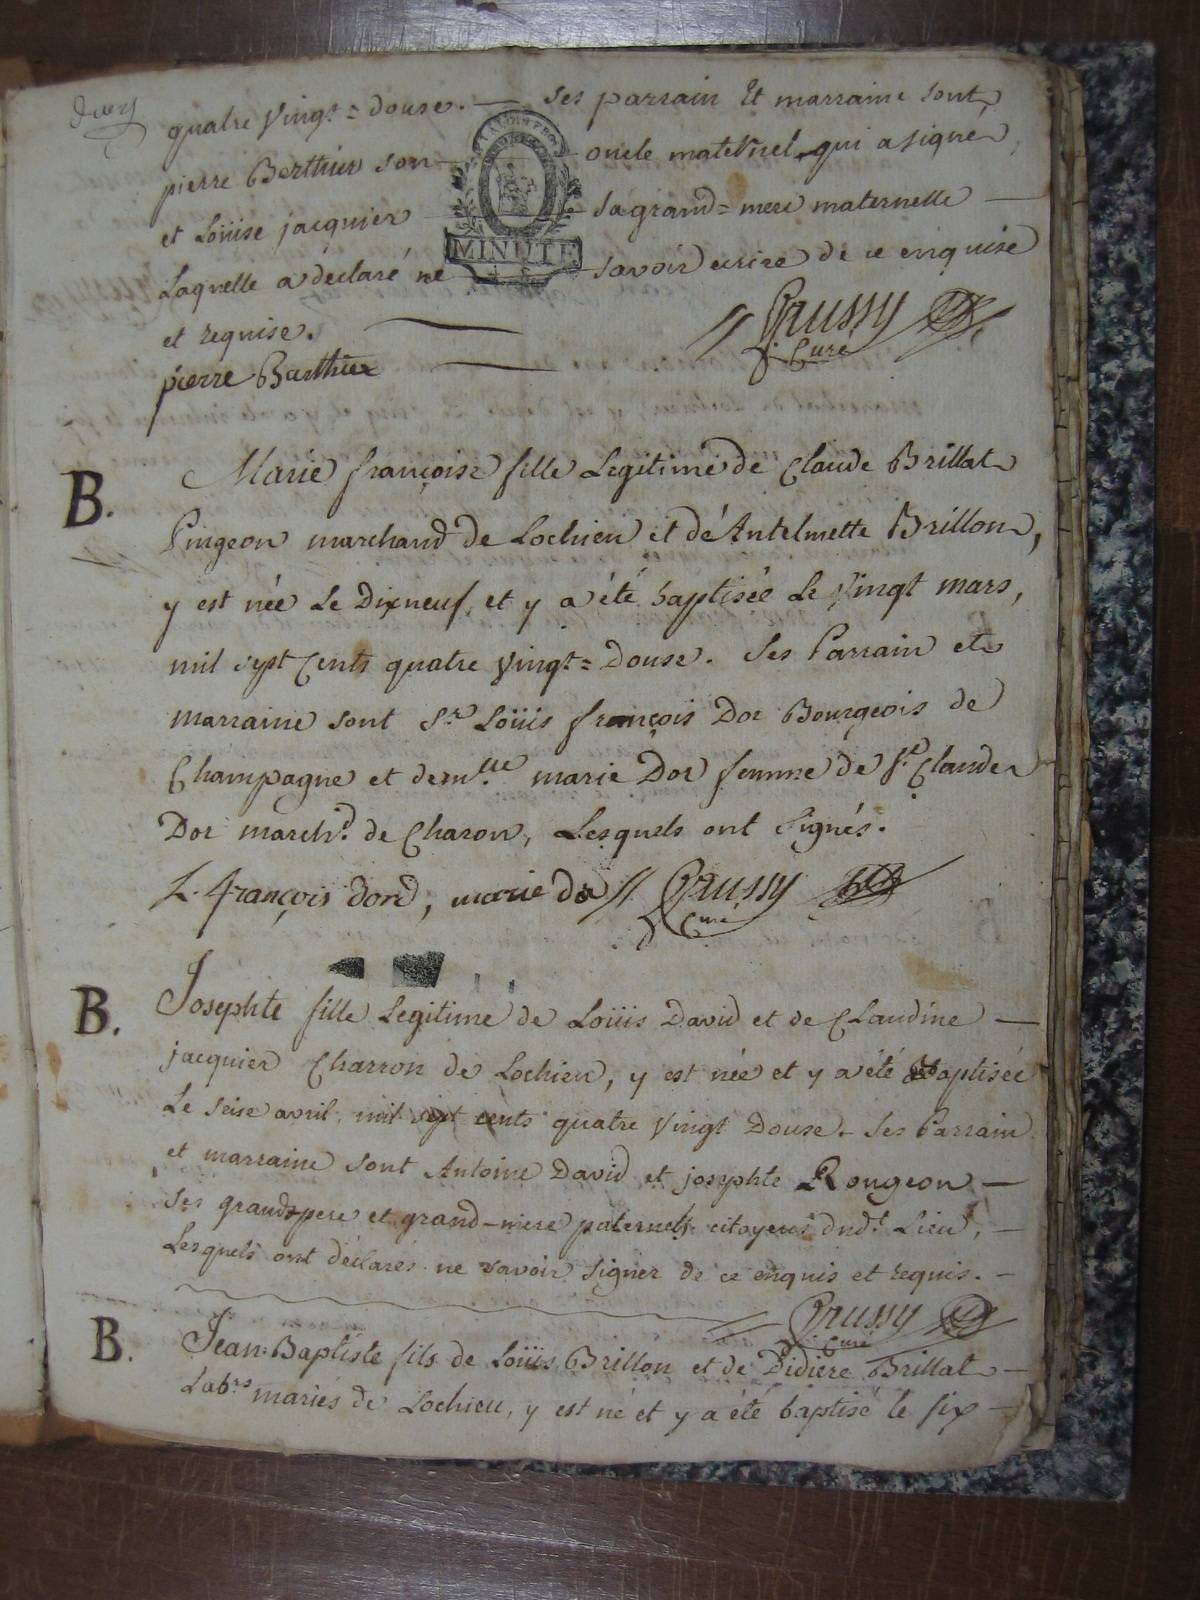 quatre vingt=douse. — ses parrain Et marraine sont
pierre Berthier son — oncle maternel, qui a signé,
et Loüise jacquier — sa grand=mere maternelle —
MINUTE
Laquelle a déclaré ne savoir ecrire de ce enquise
et requise.
// Crussy
Curé
pierre Barthier
B. Marie françoise fille Legitime de Claude Brillat
Pingeon marchand de Lochieu et de Antelmette Brillon,
y est née Le Dixneuf, et y a été baptisée Le vingt mars,
mil sept Cents quatre vingt=Douse. Ses Parrain et
marraine sont Sr. Loüis françois Dor Bourgeois de
Champagne et demlle marie Dor femme de Sr. Claude
Dor marchd. de Charon, Lesquels ont Signés.
L. françois dord, marie do // Crussy
Curé
B. Josephte fille Legitime de Loüis David et de CLaudine —
jacquier Charron de Lochieu, y est née et y a été Baptisée
Le seise avril, mil sept cents quatre vingt Douse. Ses Parrain
et marraine sont Antoine David et josephte Rougeon —
ses grand pere et grand-mere paternels citoyens dudt. Lieu, —
Lesquels ont déclarés ne savoir signer de ce enquis et requis. —
Crussy
Curé
B. Jean-Baptiste fils de Loüis Brillon et de Didiere Brillat —
Labrs mariés de Lochieu, y est né et y a été baptisé le six —